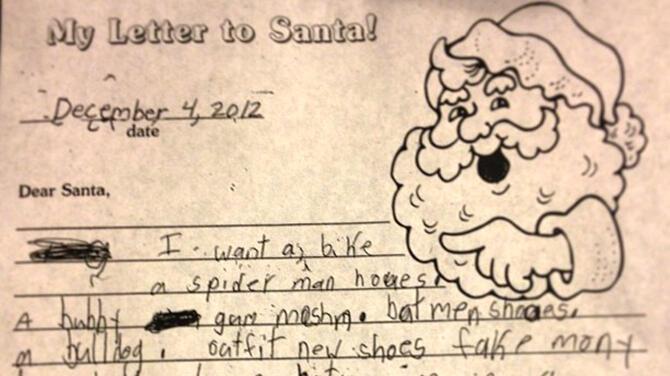 My Letter to Santa!
December 4, 2012
date
Dear Santa,
I want a bike
a spider man hoges.
A bubby gum meshn. bat men shoges.
a bulldog. oatfit new shoes fake mony